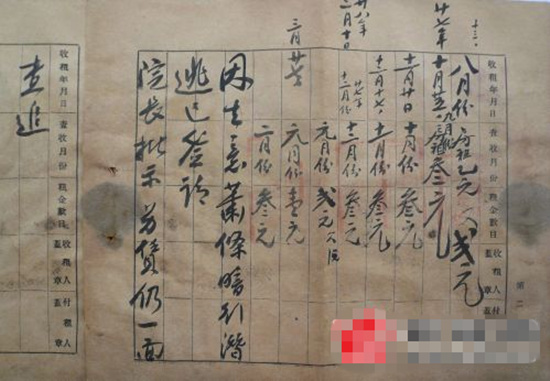 收租年月日
查收月份
租金數目
收租人蓋章
付租人蓋章
第二
十三
八月份
廿七年
叁元
貳元
十一月廿日
十月份
叁元
十二月十七
十一月份
叁元
廿八年
二月十日
廿七年
十二月份
十二月份
叁元
元月份
貳元
三月
元月份
壹元
二月份
叁元
因生意蕭條暗行潛
逃已簽請
院長批示另賃仍一面
查追
收租年月日
查收月份
租金數目
收租人蓋章
付租人蓋章